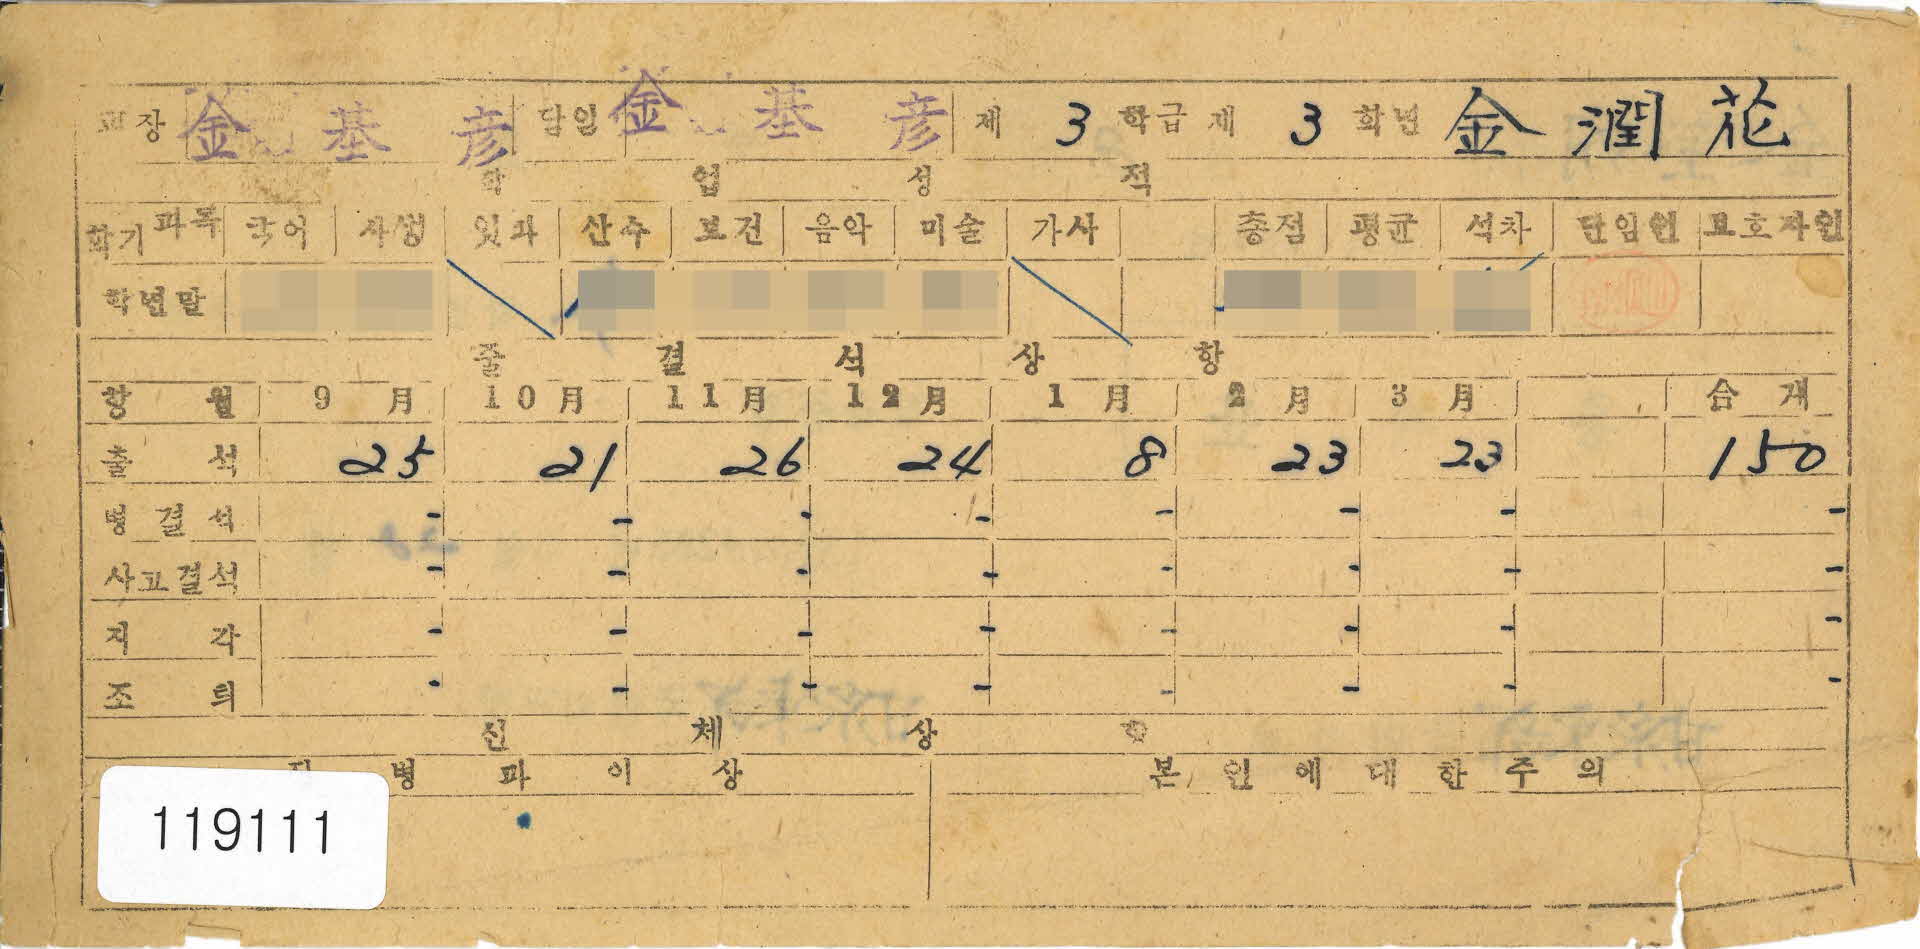 교장 金基彦 담임 金基彦 제 3 학급 제 3 학년 金潤花
학 업 성 적
학기 과목 국어 사생 잇과 산수 보건 음악 미술 가사 총점 평균 석차 단임인 보호자인
학년말
출 결 석 상 항
항 월 9月 10月 11月 12月 1月 2月 3月 合 게
출 석 25 21 26 24 8 23 23 150
병결석 - - - - - - - -
사고결석 - - - - - - - -
지 각 - - - - - - - -
조 퇴 - - - - - - - -
신 체 상
병 과 이 상 본 인 에 대 한 주 의
119111